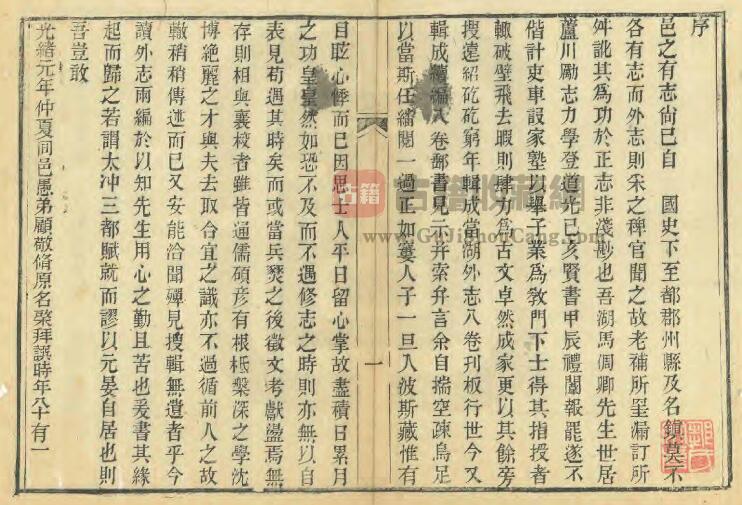 序
邑之有志尙已自 國史下至都郡州縣及名鎮莫不
各有志而外志則采之稗官聞之故老補所罣漏訂所
舛訛其爲功於正志非淺尠也吾湖馬侶卿先生世居
蘆川勵志力學登道光己亥賢書甲辰禮闈報罷遂不
偕計吏車設家塾以舉子業爲敎門下士得其指授者
輙破壁飛去暇則肆力爲古文卓然成家更以其餘旁
搜遠紹矻矻窮年輯成當湖外志八卷刊板行世今又
輯成續編八卷郵書見示并索弁言余自揣空疎烏足
以當斯任繙閱一過正如窶人子一旦入波斯藏惟有
目眩心悸而已因思士人平日留心掌故盡積日累月
之功皇皇然如恐不及而不遇修志之時則亦無以自
表見苟遇其時矣而或當兵燹之後徵文考獻盪焉無
存則相與襄校者雖皆通儒碩彥有根柢槃深之學沈
博絶麗之才與夫去取合宜之識亦不過循前人之故
轍稍稍傳述而已又安能洽聞殫見搜輯無遺者乎今
讀外志兩編於以知先生用心之勤且苦也爰書其緣
起而歸之若謂太冲三都賦就而謬以元晏自居也則
吾豈敢
光緒元年仲夏同邑愚弟顧敬脩原名榮拜譔時年八十有一
一
古籍收藏網
www.GuJiShouCang.com
古籍